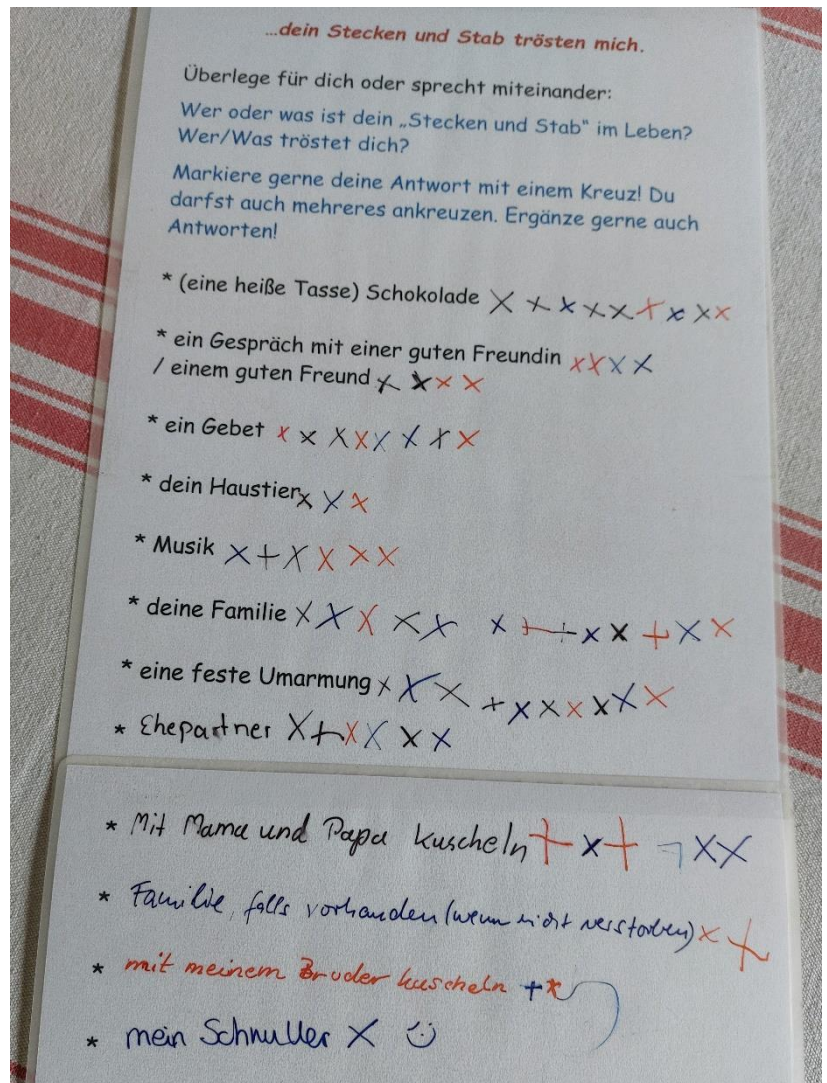 ...dein Stecken und Stab trösten mich.
Überlege für dich oder sprecht miteinander:
Wer oder was ist dein „Stecken und Stab" im Leben?
Wer/Was tröstet dich?
Markiere gerne deine Antwort mit einem Kreuz! Du
darfst auch mehreres ankreuzen. Ergänze gerne auch
Antworten!
* (eine heiße Tasse) Schokolade X X X X X X X X X
* ein Gespräch mit einer guten Freundin X X X X
/ einem guten Freund X X X X
* ein Gebet X X X X X X X X
* dein Haustier X X X
* Musik X + X X X X
* deine Familie X X X X X X + + X X + X X
* eine feste Umarmung X X X + X X X X X X
* Ehepartner X + X X X X
* Mit Mama und Papa kuscheln + X + X X
* Familie, falls vorhanden (wenn nicht verstorben) X +
* mit meinem Bruder kuscheln + X
* mein Schnuller X :)